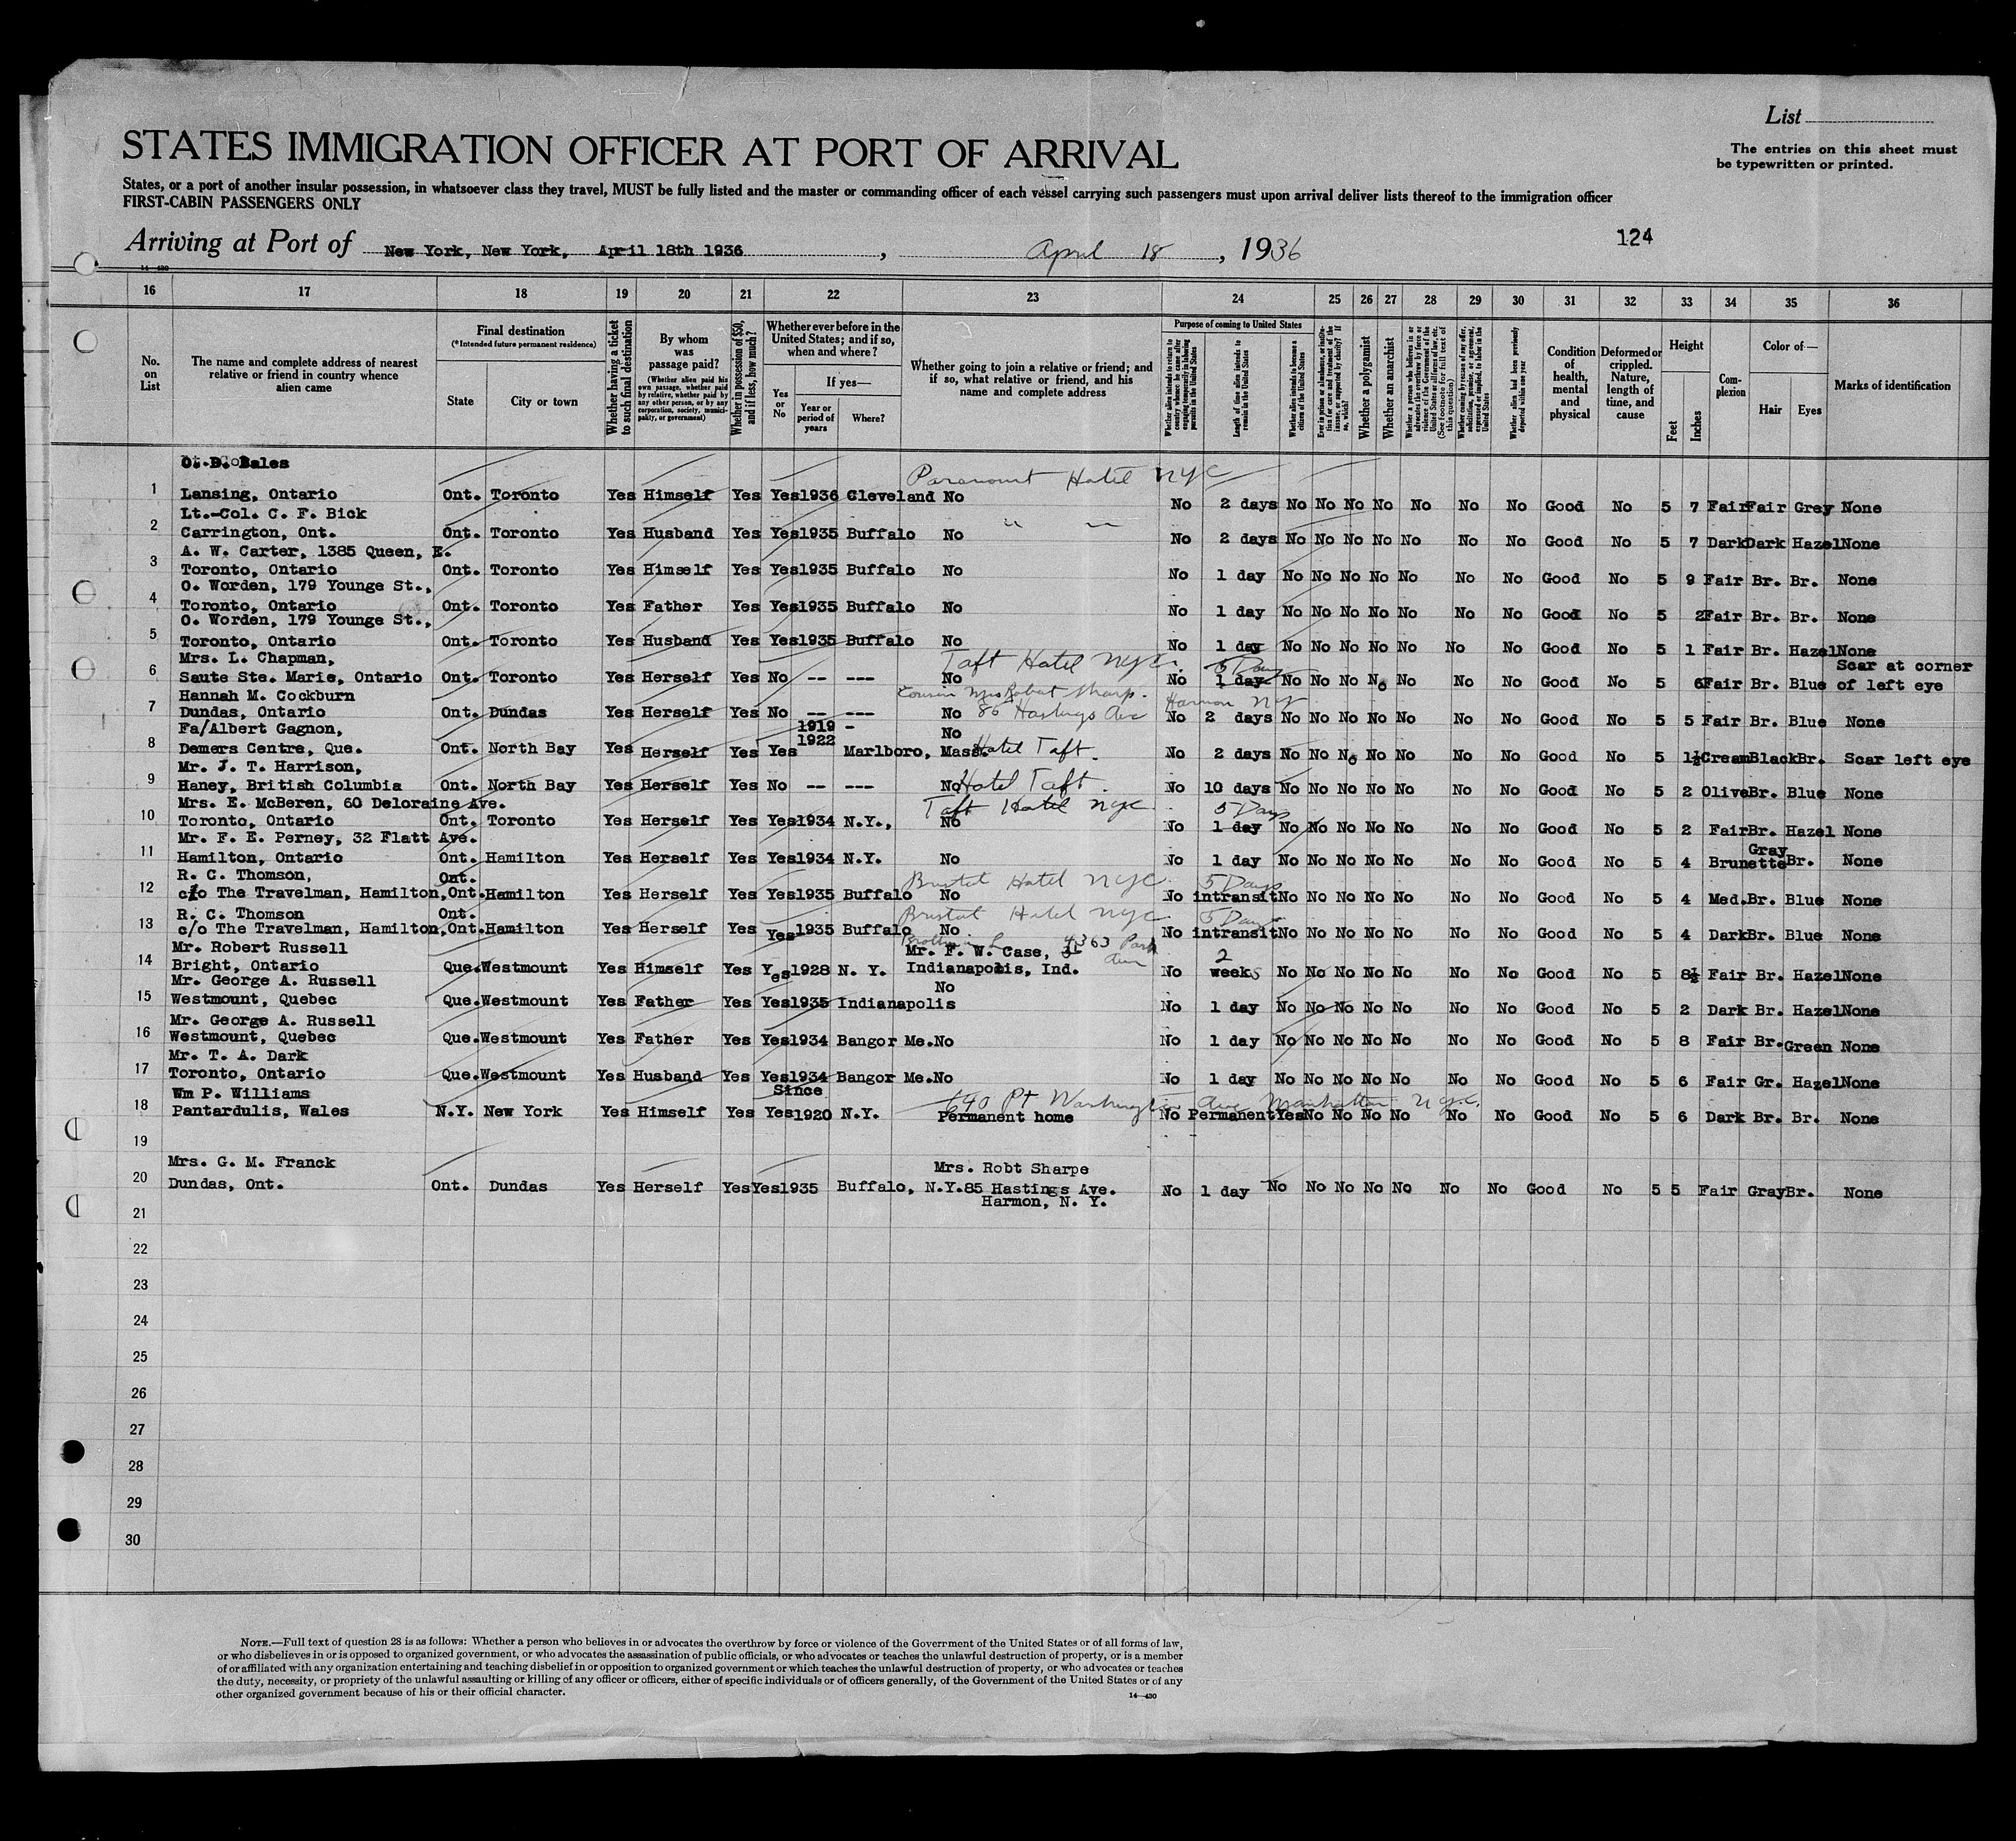 List
STATES IMMIGRATION OFFICER AT PORT OF ARRIVAL
The entries on this sheet must
be typewritten or printed.
States, or a port of another insular possession, in whatsoever class they travel, MUST be fully listed and the master or commanding officer of each vessel carrying such passengers must upon arrival deliver lists thereof to the immigration officer
FIRST-CABIN PASSENGERS ONLY
Arriving at Port of New York, New York, April 18th 1936, April 18, 1936
124
14-430
16 17 18 19 20 21 22 23 24 25 26 27 28 29 30 31 32 33 34 35 36
No. on List
The name and complete address of nearest relative or friend in country whence alien came
Final destination (*Intended future permanent residence)
State
City or town
Whether having a ticket to such final destination
By whom was passage paid?
(Whether alien paid his own passage, whether paid by relative, whether paid by any other person, or by any corporation, society, municipality, or government)
Whether in possession of $50, and if less, how much?
Whether ever before in the United States; and if so, when and where?
Yes or No
If yes—
Year or period of years
Where?
Whether going to join a relative or friend; and if so, what relative or friend, and his name and complete address
Purpose of coming to United States
Whether alien intends to return to country whence he came after engaging temporarily in laboring pursuits in the United States
Length of time alien intends to remain in the United States
Whether alien intends to become a citizen of the United States
Whether a polygamist
Whether an anarchist
Whether alien had been previously deported within one year
Condition of health, mental and physical
Deformed or crippled. Nature, length of time, and cause
Height
Feet
Inches
Complexion
Color of—
Hair
Eyes
Marks of identification
O. D. Bales
Paramount Hotel NYC
1 Lansing, Ontario Ont. Toronto Yes Himself Yes Yes 1936 Cleveland No No 2 days No No No No No No No Good No 5 7 Fair Fair Grey None
Lt.-Col. C. F. Bick
2 Carrington, Ont. Ont. Toronto Yes Husband Yes Yes 1935 Buffalo No " " No 2 days No No No No No No No Good No 5 7 Dark Dark Hazel None
A. W. Carter, 1385 Queen, E.
3 Toronto, Ontario Ont. Toronto Yes Himself Yes Yes 1935 Buffalo No No 1 day No No No No No No No Good No 5 9 Fair Br. Br. None
O. Worden, 179 Younge St.,
4 Toronto, Ontario Ont. Toronto Yes Father Yes Yes 1935 Buffalo No No 1 day No No No No No No No Good No 5 2 Fair Br. Br. None
O. Worden, 179 Younge St.,
5 Toronto, Ontario Ont. Toronto Yes Husband Yes Yes 1935 Buffalo No No 1 day No No No No No No No Good No 5 1 Fair Br. Hazel None
Mrs. L. Chapman, Taft Hotel NYC. 5 Days Scar at corner
6 Saute Ste. Marie, Ontario Ont. Toronto Yes Herself Yes No -- --- No No 1 day No No No No No No No Good No 5 6 Fair Br. Blue of left eye
Hannah M. Cockburn Cousin Mrs Robert Sharp. Harmon NY
7 Dundas, Ontario Ont. Dundas Yes Herself Yes No -- --- No 86 Hastings Ave No 2 days No No No No No No No Good No 5 5 Fair Br. Blue None
Fa/Albert Gagnon, 1919 - No
8 Demers Centre, Que. Ont. North Bay Yes Herself Yes Yes 1922 Marlboro, Mass. Hotel Taft. No 2 days No No No No No No No Good No 5 1½ Cream Black Br. Scar left eye
Mr. J. T. Harrison,
9 Haney, British Columbia Ont. North Bay Yes Herself Yes No -- --- No Hotel Taft. No 10 days No No No No No No No Good No 5 2 Olive Br. Blue None
Mrs. E. McBeren, 60 Deloraine Ave. Taft Hotel NYC 5 Days
10 Toronto, Ontario Ont. Toronto Yes Herself Yes Yes 1934 N.Y., No No 1 day No No No No No No No Good No 5 2 Fair Br. Hazel None
Mr. F. E. Perney, 32 Flatt Ave.
11 Hamilton, Ontario Ont. Hamilton Yes Herself Yes Yes 1934 N.Y. No No 1 day No No No No No No No Good No 5 4 Brunette Gray Br. None
R. C. Thomson, Ont. Bristol Hotel NYC 5 Days
12 c/o The Travelman, Hamilton, Ont. Hamilton Yes Herself Yes Yes 1935 Buffalo No No intransit No No No No No No No Good No 5 4 Med. Br. Blue None
R. C. Thomson Ont. Bristol Hotel NYC 5 Days
13 c/o The Travelman, Hamilton, Ont. Hamilton Yes Herself Yes Yes 1935 Buffalo No No intransit No No No No No No No Good No 5 4 Dark Br. Blue None
Mr. Robert Russell Mr. F. W. Case, 4363 Park 2
14 Bright, Ontario Que. Westmount Yes Himself Yes Yes 1928 N. Y. Indianapolis, Ind. No weeks No No No No No No No Good No 5 8½ Fair Br. Hazel None
Mr. George A. Russell No
15 Westmount, Quebec Que. Westmount Yes Father Yes Yes 1935 Indianapolis No 1 day No No No No No No No Good No 5 2 Dark Br. Hazel None
Mr. George A. Russell
16 Westmount, Quebec Que. Westmount Yes Father Yes Yes 1934 Bangor Me. No No 1 day No No No No No No No Good No 5 8 Fair Br. Green None
Mr. T. A. Dark
17 Toronto, Ontario Que. Westmount Yes Husband Yes Yes 1934 Bangor Me. No No 1 day No No No No No No No Good No 5 6 Fair Gr. Hazel None
Wm P. Williams Since 640 Ft Washington Ave Manhattan NYC.
18 Pantardulis, Wales N.Y. New York Yes Himself Yes Yes 1920 N.Y. Permanent home No Permanent Yes No No No No No No Good No 5 6 Dark Br. Br. None
19
Mrs. G. M. Franck Mrs. Robt Sharpe
20 Dundas, Ont. Ont. Dundas Yes Herself Yes Yes 1935 Buffalo, N.Y. 85 Hastings Ave. No 1 day No No No No No No No Good No 5 5 Fair Gray Br. None
Harmon, N. Y.
21
22
23
24
25
26
27
28
29
30
NOTE.—Full text of question 28 is as follows: Whether a person who believes in or advocates the overthrow by force or violence of the Government of the United States or of all forms of law,
or who disbelieves in or is opposed to organized government, or who advocates the assassination of public officials, or who advocates or teaches the unlawful destruction of property, or is a member
of or affiliated with any organization entertaining and teaching disbelief in or opposition to organized government or which teaches the unlawful destruction of property, or who advocates or teaches
the duty, necessity, or propriety of the unlawful assaulting or killing of any officer or officers, either of specific individuals or of officers generally, of the Government of the United States or of any
other organized government because of his or their official character.
14-430